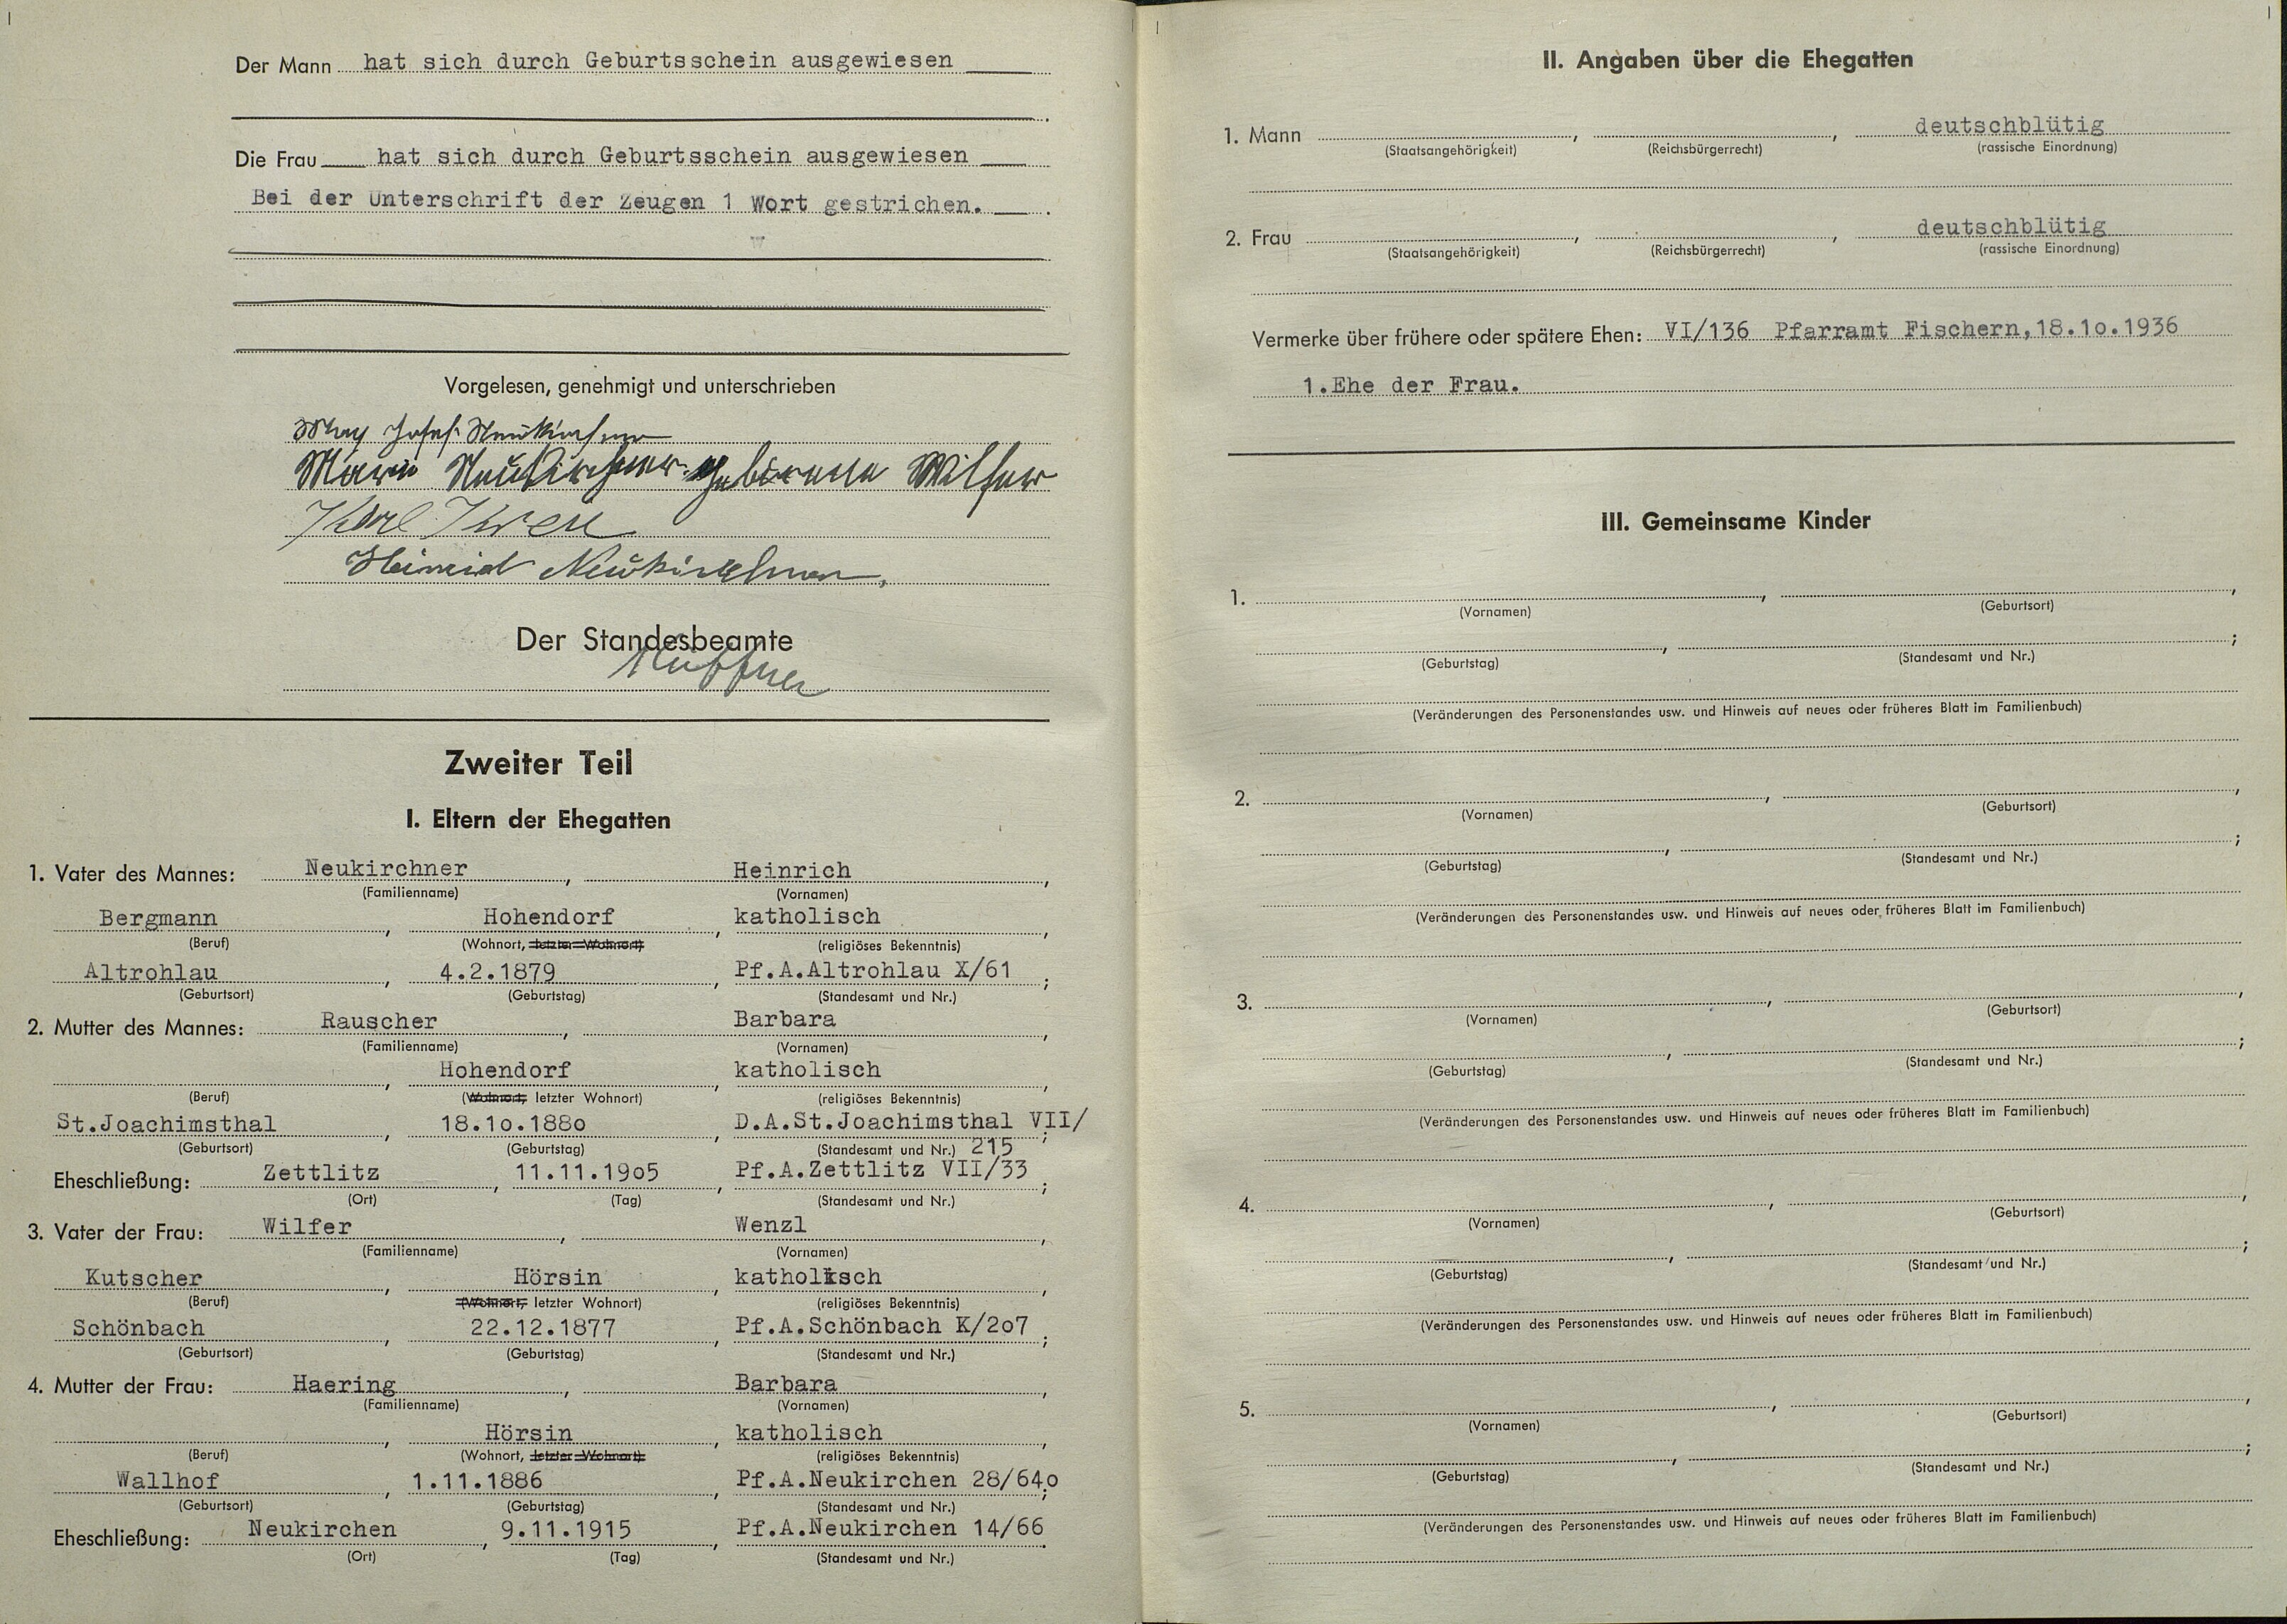 Der Mann hat sich durch Geburtsschein ausgewiesen
Die Frau hat sich durch Geburtsschein ausgewiesen
Bei der Unterschrift der Zeugen 1 Wort gestrichen.
Vorgelesen, genehmigt und unterschrieben
Max Josef Neukirchner
Marie Neukirchner geborene Wilfer
Karl
Heinrich Neukirchner
Der Standesbeamte
Zweiter Teil
I. Eltern der Ehegatten
1. Vater des Mannes: Neukirchner, Heinrich,
(Familienname) (Vornamen)
Bergmann, Hohendorf, katholisch,
(Beruf) (Wohnort, letzter Wohnort) (religiöses Bekenntnis)
Altrohlau, 4.2.1879, Pf.A.Altrohlau X/61;
(Geburtsort) (Geburtstag) (Standesamt und Nr.)
2. Mutter des Mannes: Rauscher, Barbara,
(Familienname) (Vornamen)
, Hohendorf, katholisch,
(Beruf) (Wohnort, letzter Wohnort) (religiöses Bekenntnis)
St.Joachimsthal, 18.1o.188o, D.A.St.Joachimsthal VII/;
(Geburtsort) (Geburtstag) (Standesamt und Nr.) 215
Eheschließung: Zettlitz, 11.11.19o5, Pf.A.Zettlitz VII/33;
(Ort) (Tag) (Standesamt und Nr.)
3. Vater der Frau: Wilfer, Wenzl,
(Familienname) (Vornamen)
Kutscher, Hörsin, katholisch,
(Beruf) (Wohnort, letzter Wohnort) (religiöses Bekenntnis)
Schönbach, 22.12.1877, Pf.A.Schönbach K/2o7;
(Geburtsort) (Geburtstag) (Standesamt und Nr.)
4. Mutter der Frau: Haering, Barbara,
(Familienname) (Vornamen)
, Hörsin, katholisch,
(Beruf) (Wohnort, letzter Wohnort) (religiöses Bekenntnis)
Wallhof, 1.11.1886, Pf.A.Neukirchen 28/64o;
(Geburtsort) (Geburtstag) (Standesamt und Nr.)
Eheschließung: Neukirchen, 9.11.1915, Pf.A.Neukirchen 14/66.
(Ort) (Tag) (Standesamt und Nr.)
II. Angaben über die Ehegatten
1. Mann , , deutschblütig
(Staatsangehörigkeit) (Reichsbürgerrecht) (rassische Einordnung)
2. Frau , , deutschblütig
(Staatsangehörigkeit) (Reichsbürgerrecht) (rassische Einordnung)
Vermerke über frühere oder spätere Ehen: VI/136 Pfarramt Fischern,18.1o.1936
1.Ehe der Frau.
III. Gemeinsame Kinder
1. , ,
(Vornamen) (Geburtsort)
, ;
(Geburtstag) (Standesamt und Nr.)
(Veränderungen des Personenstandes usw. und Hinweis auf neues oder früheres Blatt im Familienbuch)
2. , ,
(Vornamen) (Geburtsort)
, ;
(Geburtstag) (Standesamt und Nr.)
(Veränderungen des Personenstandes usw. und Hinweis auf neues oder früheres Blatt im Familienbuch)
3. , ,
(Vornamen) (Geburtsort)
, ;
(Geburtstag) (Standesamt und Nr.)
(Veränderungen des Personenstandes usw. und Hinweis auf neues oder früheres Blatt im Familienbuch)
4. , ,
(Vornamen) (Geburtsort)
, ;
(Geburtstag) (Standesamt und Nr.)
(Veränderungen des Personenstandes usw. und Hinweis auf neues oder früheres Blatt im Familienbuch)
5. , ,
(Vornamen) (Geburtsort)
, ;
(Geburtstag) (Standesamt und Nr.)
(Veränderungen des Personenstandes usw. und Hinweis auf neues oder früheres Blatt im Familienbuch)